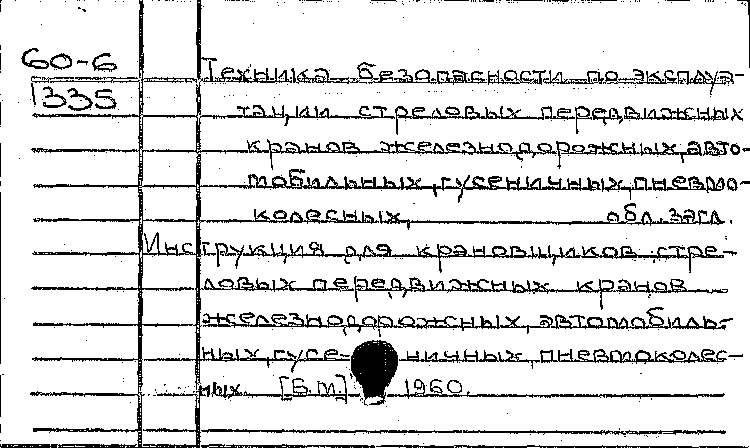 60-6
Техника безопасности по эксплуа-
335
тации стреловых передвижных
кранов железнодорожных, авто-
мобильных, гусеничных, пневмо-
колесных, обл. загл.
Инструкция для крановщиков стре-
ловых передвижных кранов
железнодорожных, автомобиль-
ных, гусе- ничных, пневмоколес-
ных. [Б.М.] 1960.